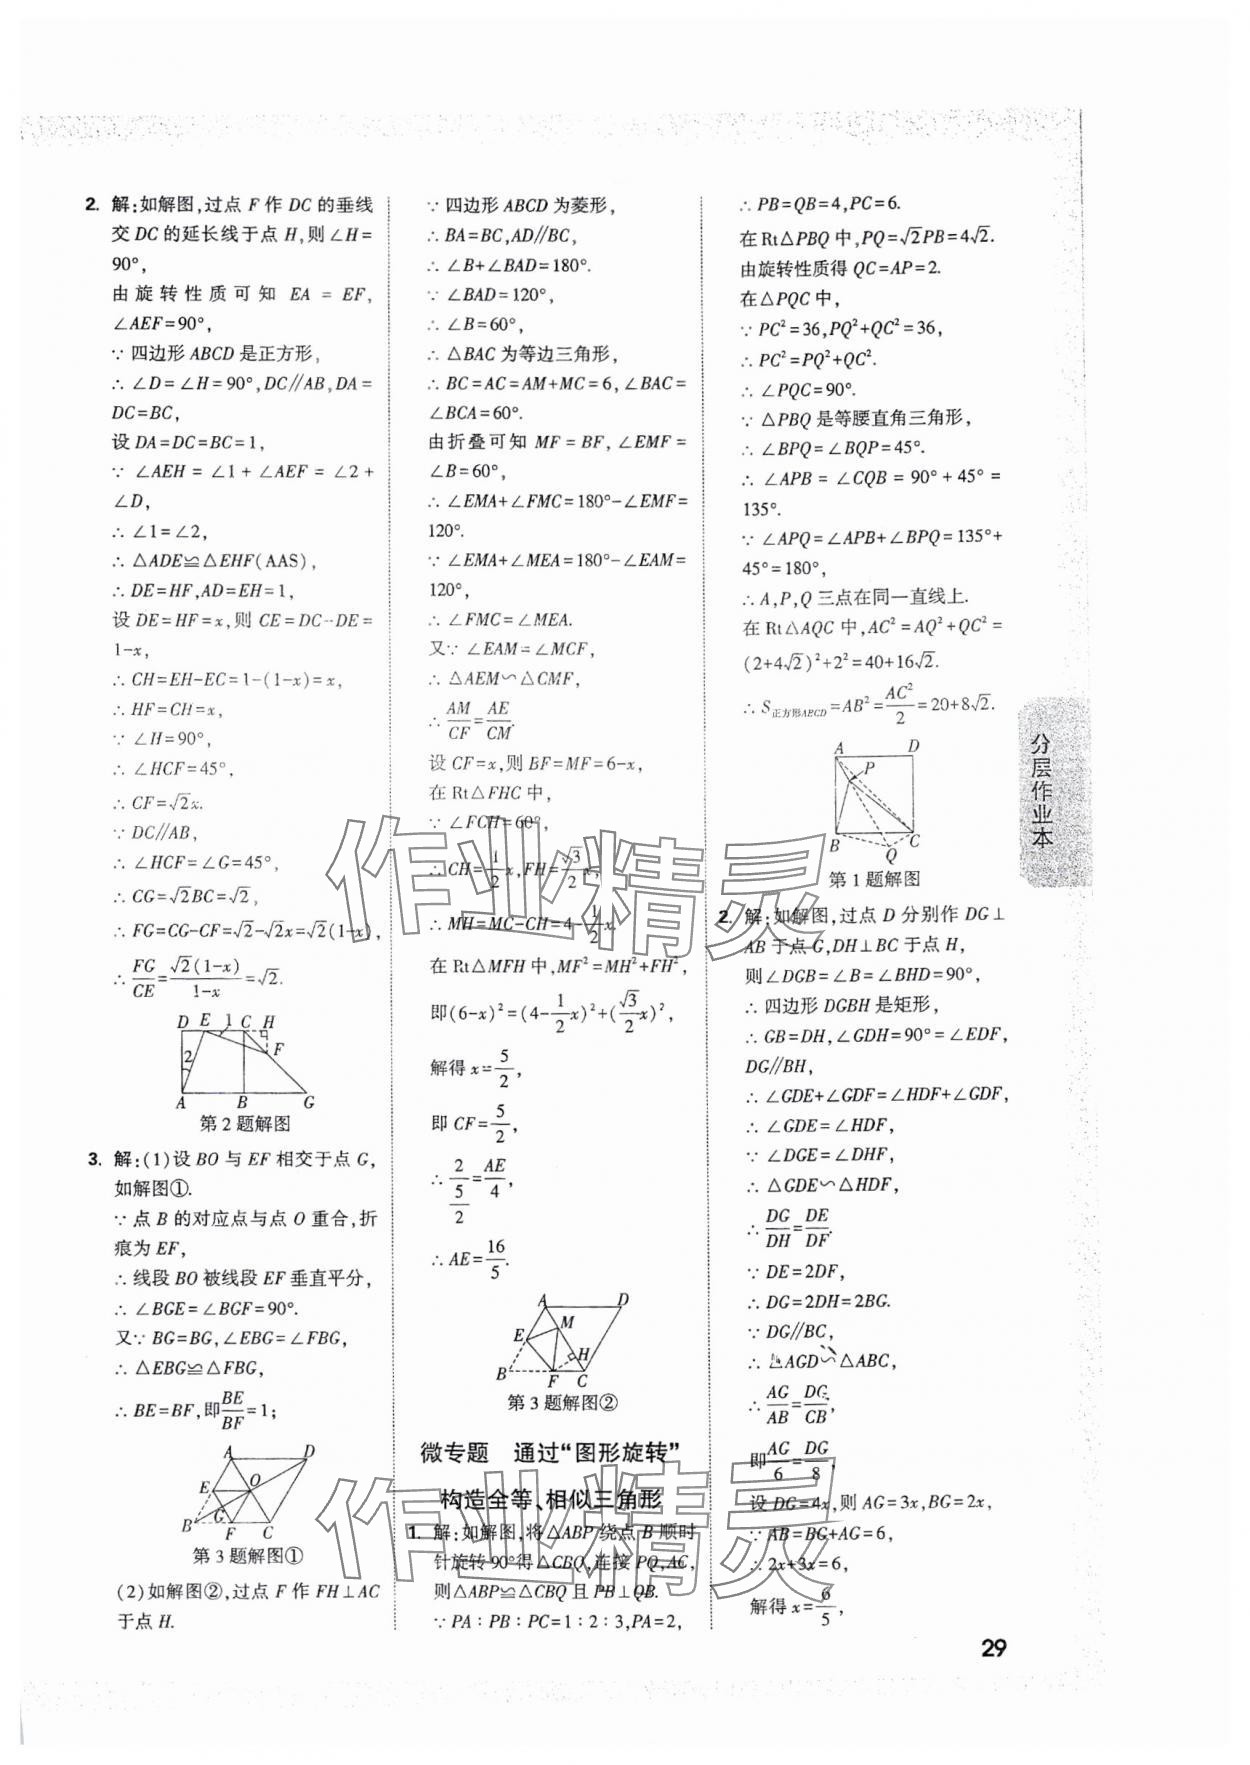 2. 解:如解图,过点 F 作 DC 的垂线
交 DC 的延长线于点 H,则∠H=
90°,
由旋转性质可知 EA = EF,
∠AEF=90°,
∵ 四边形 ABCD 是正方形,
∴ ∠D=∠H=90°,DC//AB,DA=
DC=BC,
设 DA=DC=BC=1,
∵ ∠AEH = ∠1 + ∠AEF = ∠2 +
∠D,
∴ ∠1=∠2,
∴ △ADE≌△EHF(AAS),
∴ DE=HF,AD=EH=1,
设 DE=HF=x,则 CE=DC-DE=
1-x,
∴ CH=EH-EC=1-(1-x)=x,
∴ HF=CH=x,
∵ ∠H=90°,
∴ ∠HCF=45°,
∴ CF=√2x.
∵ DC//AB,
∴ ∠HCF=∠G=45°,
∴ CG=√2BC=√2,
∴ FG=CG-CF=√2-√2x=√2(1-x),
∴ FG/CE=√2(1-x)/1-x=√2.
D E 1 C H
2 F
A B G
第 2 题解图
3. 解:(1)设 BO 与 EF 相交于点 G,
如解图①.
∵ 点 B 的对应点与点 O 重合,折
痕为 EF,
∴ 线段 BO 被线段 EF 垂直平分,
∴ ∠BGE=∠BGF=90°.
又∵ BG=BG,∠EBG=∠FBG,
∴ △EBG≌△FBG,
∴ BE=BF,即BE/BF=1;
A D
E O
G
B F C
第 3 题解图①
(2)如解图②,过点 F 作 FH⊥AC
于点 H.
∵ 四边形 ABCD 为菱形,
∴ BA=BC,AD//BC,
∴ ∠B+∠BAD=180°.
∵ ∠BAD=120°,
∴ ∠B=60°,
∴ △BAC 为等边三角形,
∴ BC=AC=AM+MC=6,∠BAC=
∠BCA=60°.
由折叠可知 MF=BF,∠EMF=
∠B=60°,
∴ ∠EMA+∠FMC=180°-∠EMF=
120°.
∵ ∠EMA+∠MEA=180°-∠EAM=
120°,
∴ ∠FMC=∠MEA.
又∵ ∠EAM=∠MCF,
∴ △AEM∽△CMF,
∴ AM/CF=AE/CM.
设 CF=x,则 BF=MF=6-x,
在 Rt△FHC 中,
∵ ∠FCH=60°,
∴ CH=1/2x,FH=√3/2x,
∴ MH=MC-CH=4-1/2x.
在 Rt△MFH 中,MF²=MH²+FH²,
即(6-x)²=(4-1/2x)²+(√3/2x)²,
解得 x=5/2,
即 CF=5/2,
∴ 2/(5/2)=AE/4,
∴ AE=16/5.
A D
M
E
H
B F C
第 3 题解图②
微专题 通过“图形旋转”
构造全等、相似三角形
1. 解:如解图,将△ABP 绕点 B 顺时
针旋转90°得△CBQ,连接 PQ,AC,
则△ABP≌△CBQ 且 PB⊥QB.
∵ PA∶PB∶PC=1∶2∶3,PA=2,
∴ PB=QB=4,PC=6.
在 Rt△PBQ 中,PQ=√2PB=4√2.
由旋转性质得 QC=AP=2.
在△PQC 中,
∵ PC²=36,PQ²+QC²=36,
∴ PC²=PQ²+QC².
∴ ∠PQC=90°.
∵ △PBQ 是等腰直角三角形,
∴ ∠BPQ=∠BQP=45°.
∴ ∠APB = ∠CQB = 90° + 45° =
135°.
∵ ∠APQ=∠APB+∠BPQ=135°+
45°=180°,
∴ A,P,Q 三点在同一直线上.
在 Rt△AQC 中,AC²=AQ²+QC²=
(2+4√2)²+2²=40+16√2.
∴ S正方形ABCD=AB²=AC²/2=20+8√2.
A D
P
B C
Q
第 1 题解图
2. 解:如解图,过点 D 分别作 DG⊥
AB 于点 G,DH⊥BC 于点 H,
则∠DGB=∠B=∠BHD=90°,
∴ 四边形 DGBH 是矩形,
∴ GB=DH,∠GDH=90°=∠EDF,
DG//BH,
∴ ∠GDE+∠GDF=∠HDF+∠GDF,
∴ ∠GDE=∠HDF,
∵ ∠DGE=∠DHF,
∴ △GDE∽△HDF,
∴ DG/DH=DE/DF.
∵ DE=2DF,
∴ DG=2DH=2BG.
∵ DG//BC,
∴ △AGD∽△ABC,
∴ AG/AB=DG/CB,
即AG/6=DG/8,
设 DG=4x,则 AG=3x,BG=2x,
∵ AB=BG+AG=6,
∴ 2x+3x=6,
解得 x=6/5,
分层作业本
29
作业精灵
作业精灵